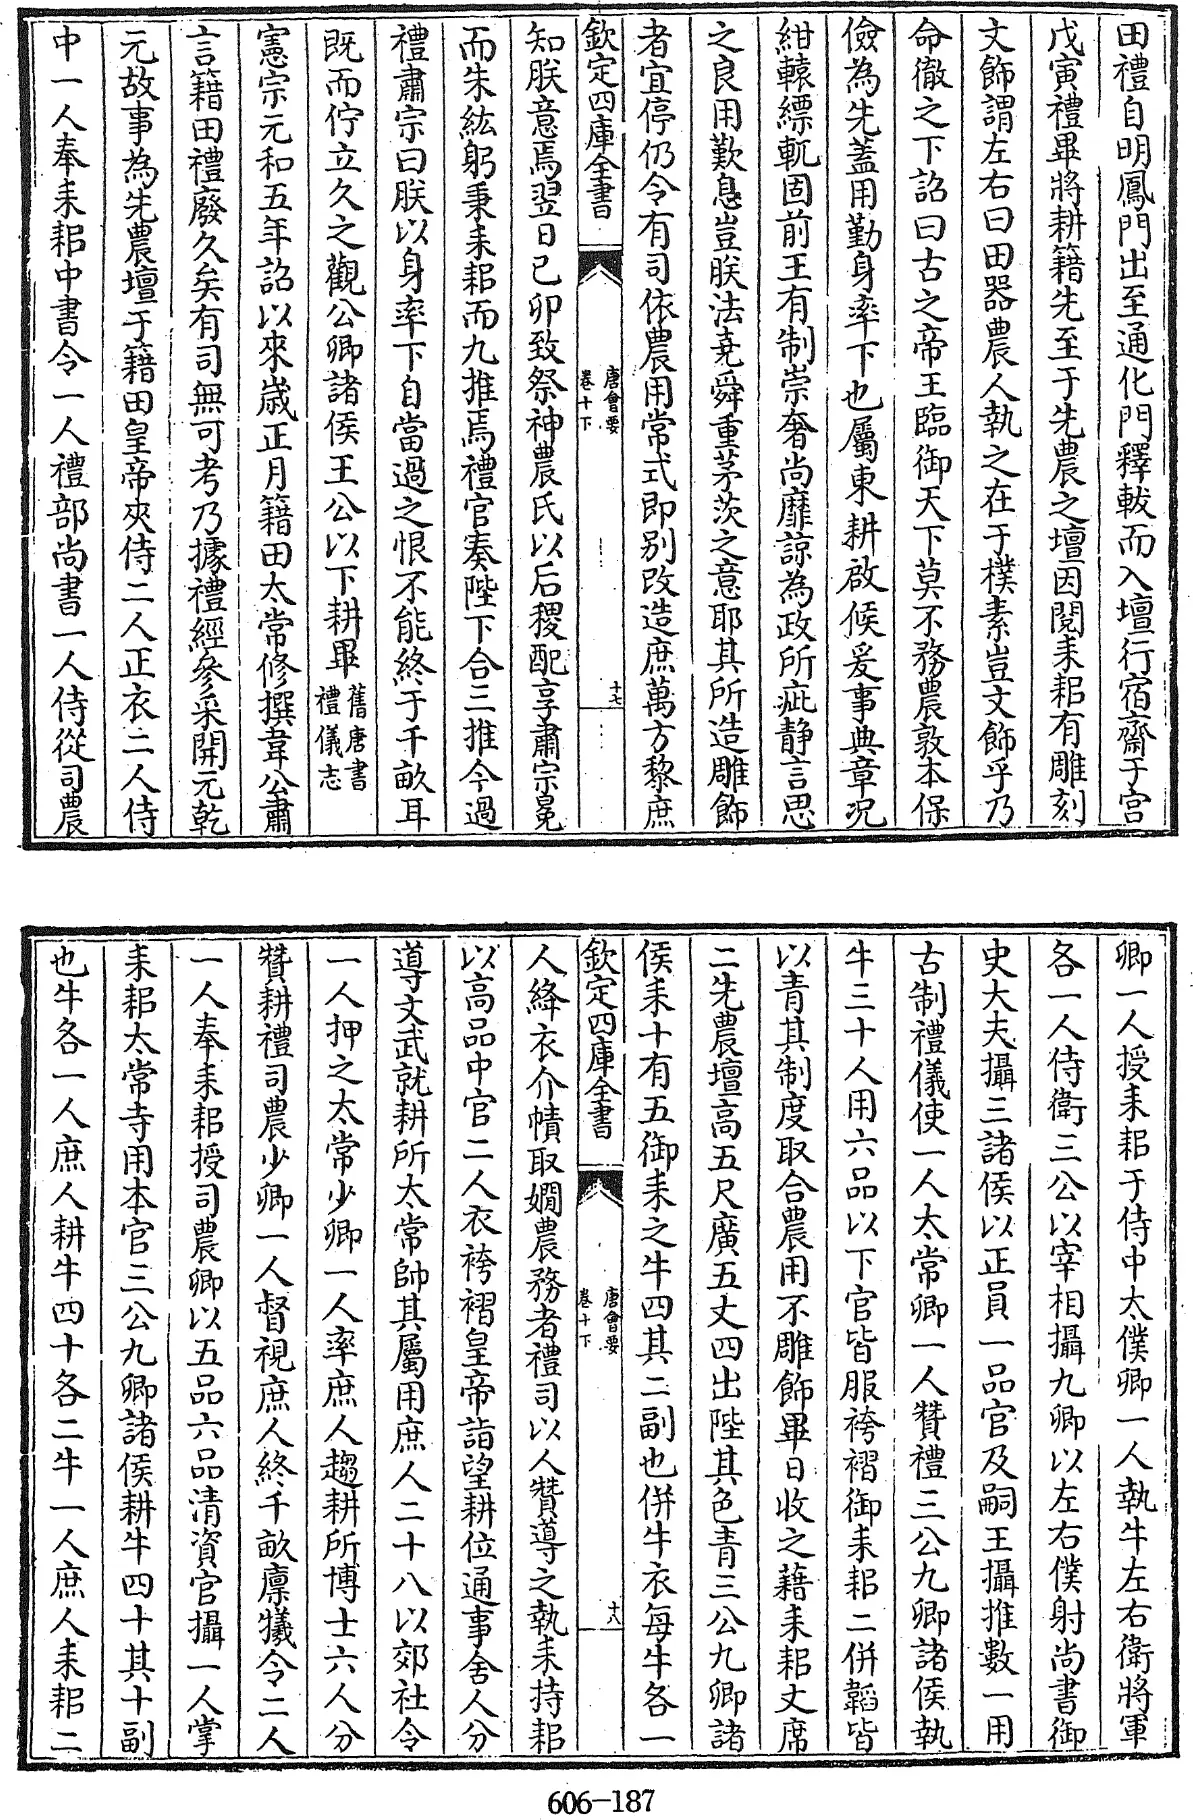 田禮自明鳳門出至通化門釋軷而入壇行宿齋于宮
戊寅禮畢將耕籍先至于先農之壇因閱耒耜有雕刻
文飾謂左右曰田器農人執之在于樸素豈文飾乎乃
命徹之下詔曰古之帝王臨御天下莫不務農敦本保
儉為先蓋用勤身率下也屬東耕啟候爰事典章況
紺轅縹軏固前王有制崇奢尚靡諒為政所疵静言思
之良用歎息豈朕法堯舜重茅茨之意耶其所造雕飾
者宜停仍令有司依農用常式即別改造庶萬方黎庶
欽定四庫全書
唐會要
卷十下
十七
知朕意焉翌日己卯致祭神農氏以后稷配享肅宗冕
而朱紘躬秉耒耜而九推焉禮官奏陛下合三推今過
禮肅宗曰朕以身率下自當過之恨不能終于千畝耳
既而佇立久之觀公卿諸侯王公以下耕畢舊唐書
禮儀志
憲宗元和五年詔以來歲正月籍田太常修撰韋公肅
言籍田禮廢久矣有司無可考乃據禮經參采開元乾
元故事為先農壇于籍田皇帝夾侍二人正衣二人侍
中一人奉耒耜中書令一人禮部尚書一人侍從司農
卿一人授耒耜于侍中太僕卿一人執牛左右衛將軍
各一人侍衛三公以宰相攝九卿以左右僕射尚書御
史大夫攝三諸侯以正員一品官及嗣王攝推數一用
古制禮儀使一人太常卿一人贊禮三公九卿諸侯執
牛三十人用六品以下官皆服袴褶御耒耜二併韜皆
以青其制度取合農用不雕飾畢日收之藉耒耜丈席
二先農壇高五尺廣五丈四出陛其色青三公九卿諸
侯耒十有五御耒之牛四其二副也併牛衣每牛各一
欽定四庫全書
唐會要
卷十下
十八
人絳衣介幘取嫺農務者禮司以人贊導之執耒持耜
以高品中官二人衣袴褶皇帝詣望耕位通事舍人分
導文武就耕所太常帥其屬用庶人二十八以郊社令
一人押之太常少卿一人率庶人趨耕所博士六人分
贊耕禮司農少卿一人督視庶人終千畝廪犧令二人
一人奉耒耜授司農卿以五品六品清資官攝一人掌
耒耜太常寺用本官三公九卿諸侯耕牛四十其十副
也牛各一人庶人耕牛四十各二牛一人庶人耒耜二
606-187